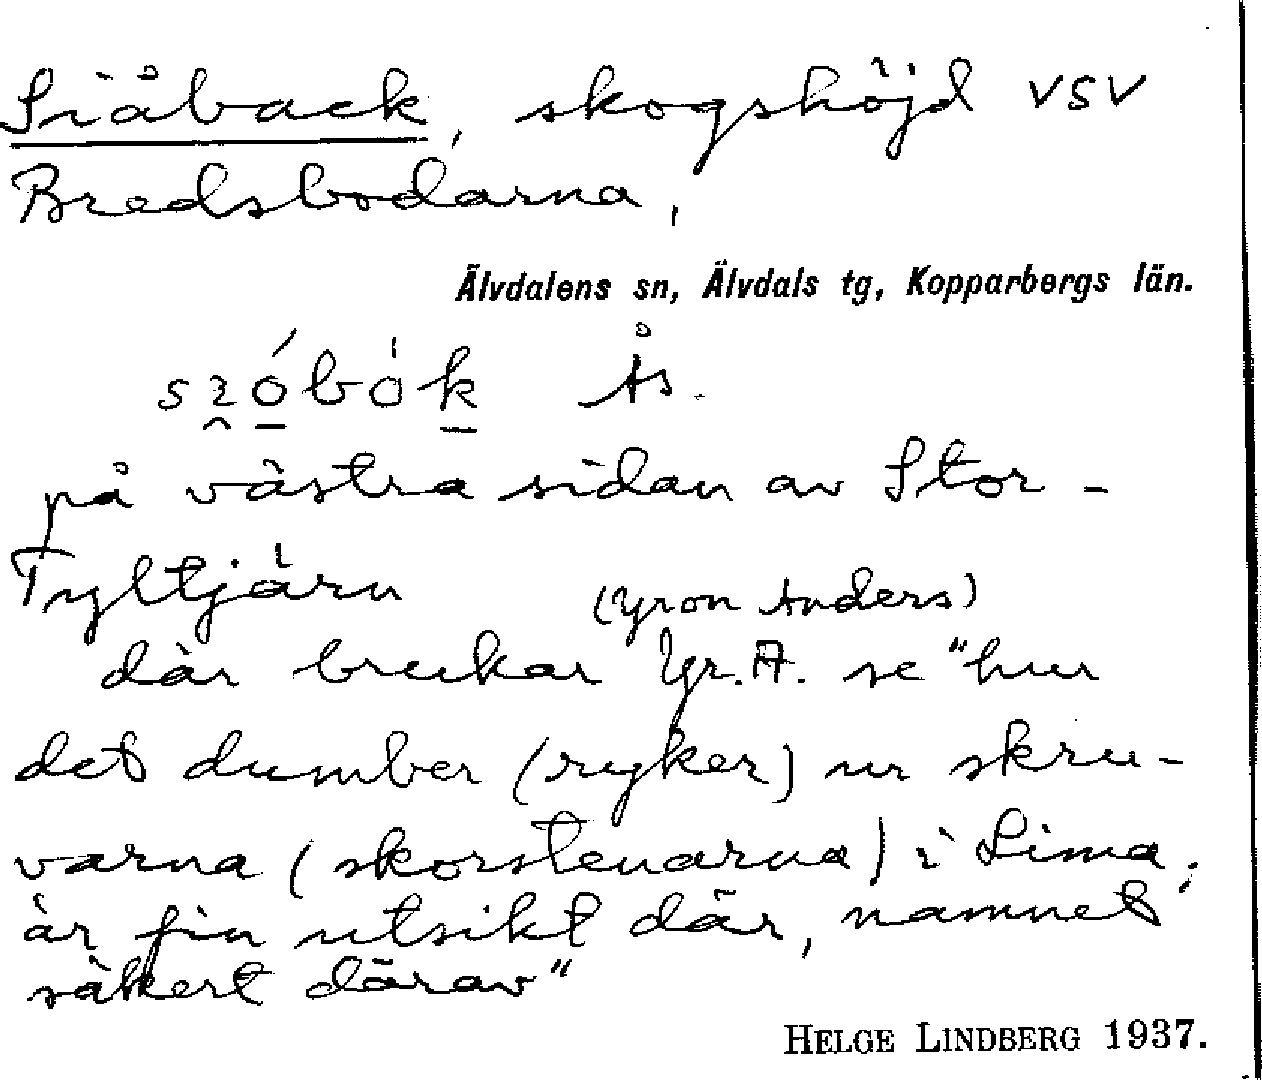 Siåback, skogshöjd VSV
Bredsbodarna,
Älvdalens sn, Älvdals tg, Kopparbergs län.
Ås.
på västra sidan av Stor-
Tyltjärn (Gyron Anders)
där brukar Gyr. A. se "hur
det dumber (ryker) ur skru-
varna (skorstenarna) i Lima,
är fin utsikt där, namnet
säkert därav"
HELGE LINDBERG 1937.